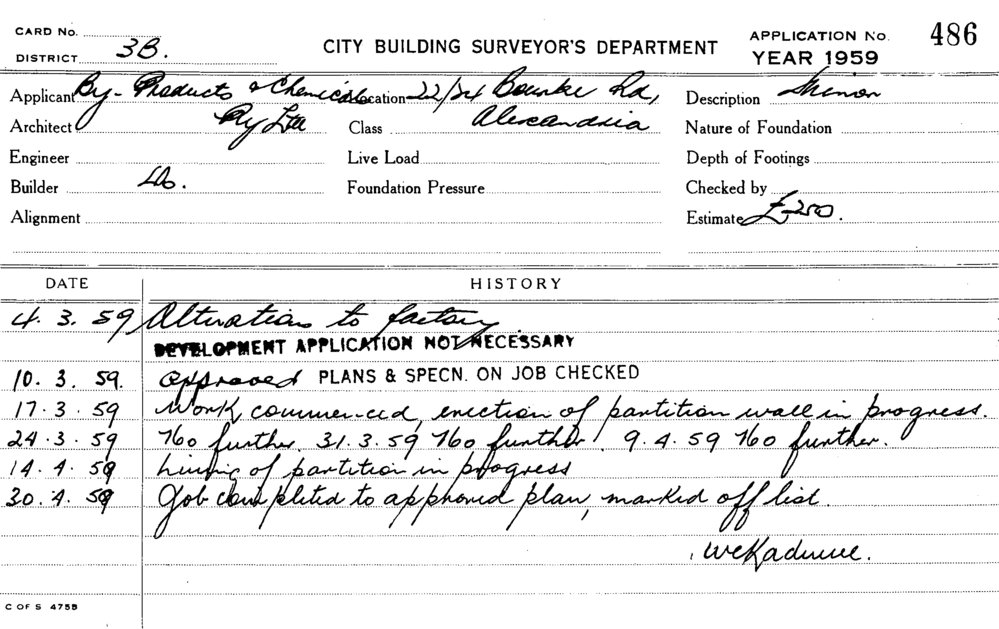 CARD No.
DISTRICT 3B.
CITY BUILDING SURVEYOR'S DEPARTMENT
APPLICATION No. 486
YEAR 1959
Applicant By-Products & Chemicals Location 22/24 Bourke Rd, Description Minor
Architect Pty Ltd Class Alexandria Nature of Foundation
Engineer Live Load Depth of Footings
Builder Do. Foundation Pressure Checked by
Alignment Estimate £250.
DATE HISTORY
4. 3. 59 Alterations to factory.
DEVELOPMENT APPLICATION NOT NECESSARY
10. 3. 59. Approved PLANS & SPECN. ON JOB CHECKED
17. 3. 59 Work commenced, erection of partition wall in progress.
24. 3. 59 No further. 31. 3. 59 No further. 9. 4. 59 No further.
14. 4. 59 Lining of partition in progress
30. 4. 59 Job completed to approved plan, marked off list.
C OF S 475B